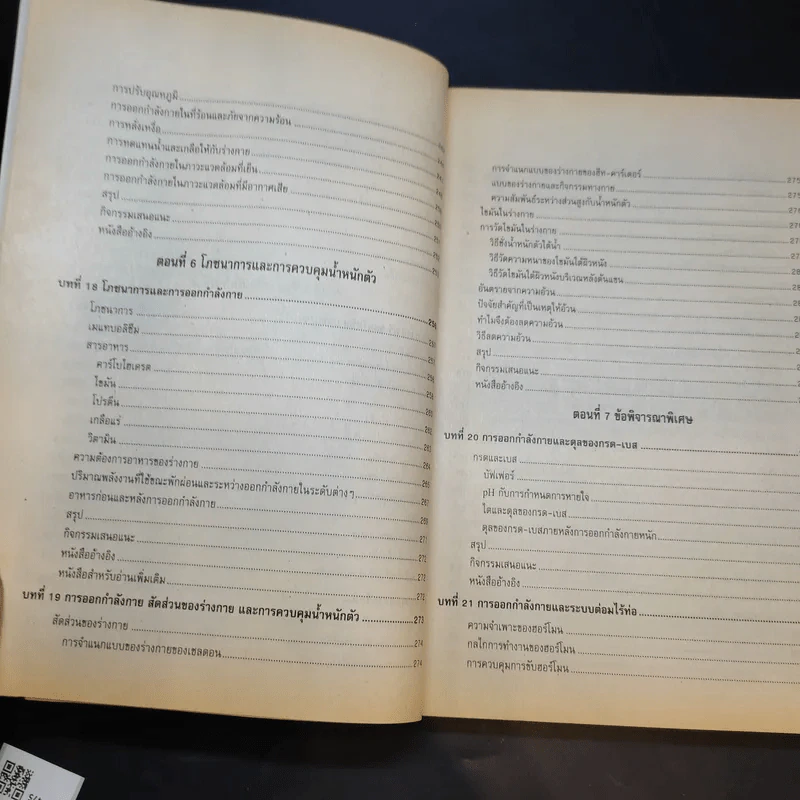 การปรับอุณหภูมิ
การออกกำลังกายในที่ร้อนและภัยจากความร้อน
การหลั่งเหงื่อ
การทดแทนน้ำและเกลือให้กับร่างกาย
การออกกำลังกายในภาวะแวดล้อมที่เย็น
การออกกำลังกายในภาวะแวดล้อมที่มีอากาศเสีย
สรุป
กิจกรรมเสนอแนะ
หนังสืออ้างอิง
ตอนที่ 6 โภชนาการและการควบคุมน้ำหนักตัว
บทที่ 18 โภชนาการและการออกกำลังกาย
โภชนาการ
เมแทบอลิซึม
สารอาหาร
คาร์โบไฮเดรต
ไขมัน
โปรตีน
เกลือแร่
วิตามิน
ความต้องการอาหารของร่างกาย 264
ปริมาณพลังงานที่ใช้ขณะพักผ่อนและระหว่างออกกำลังกายในระดับต่างๆ 267
อาหารก่อนและหลังการออกกำลังกาย
สรุป 271
กิจกรรมเสนอแนะ 271
หนังสืออ้างอิง 272
หนังสือสำหรับอ่านเพิ่มเติม 272
บทที่ 19 การออกกำลังกาย สัดส่วนของร่างกาย และการควบคุมน้ำหนักตัว 273
สัดส่วนของร่างกาย 274
การจำแนกแบบของร่างกายของเชลดอน 274
การจำแนกแบบของร่างกายของฮีท-คาร์เตอร์ 275
แบบของร่างกายและกิจกรรมทางกาย
ความสัมพันธ์ระหว่างส่วนสูงกับน้ำหนักตัว
ไขมันในร่างกาย
การวัดไขมันในร่างกาย
วิธีชั่งน้ำหนักตัวใต้น้ำ
วิธีวัดความหนาของไขมันใต้ผิวหนัง
วิธีวัดไขมันใต้ผิวหนังบริเวณหลังต้นแขน
อันตรายจากความอ้วน
ปัจจัยสำคัญที่เป็นเหตุให้อ้วน
ทำไมจึงต้องลดความอ้วน
วิธีลดความอ้วน
สรุป
กิจกรรมเสนอแนะ
หนังสืออ้างอิง
ตอนที่ 7 ข้อพิจารณาพิเศษ
บทที่ 20 การออกกำลังกายและดุลของกรด-เบส
กรดและเบส
บัฟเฟอร์
pH กับการกำหนดการหายใจ
ไตและดุลของกรด-เบส
ดุลของกรด-เบสภายหลังการออกกำลังกายหนัก
สรุป
กิจกรรมเสนอแนะ
หนังสืออ้างอิง
บทที่ 21 การออกกำลังกายและระบบต่อมไร้ท่อ
ความจำเพาะของฮอร์โมน
กลไกการทำงานของฮอร์โมน
การควบคุมการขับฮอร์โมน